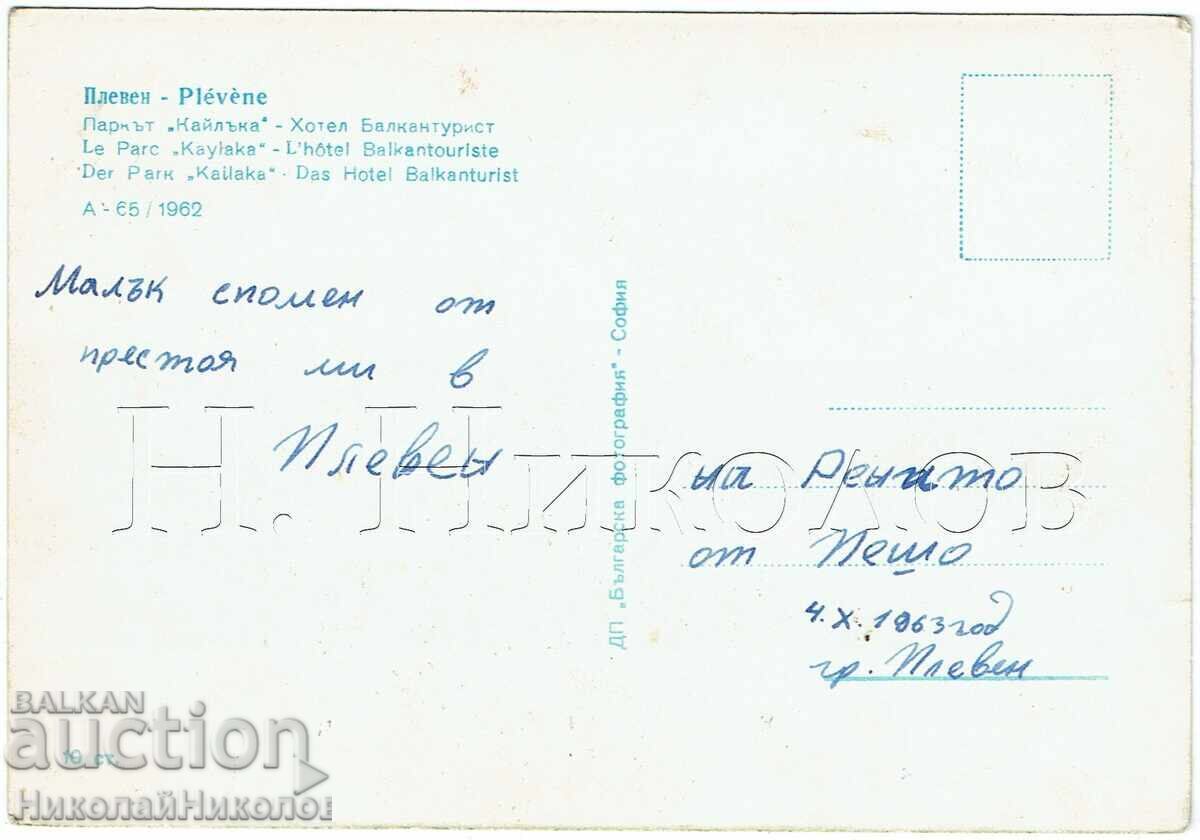 Плевен - Plévène
Паркът „Кайлъка" - Хотел Балкантурист
Le Parc „Kaylaka" - L'hôtel Balkantouriste
Der Park „Kailaka" - Das Hotel Balkanturist
А - 65 / 1962
Малък спомен от
престоя ми в
Плевен
ДП „Българска фотография" - София
на Ренито
от Пешо
4.X.1963 год
гр. Плевен
Н. Николов
10 ст.
BALKAN
auction
НиколайНиколов